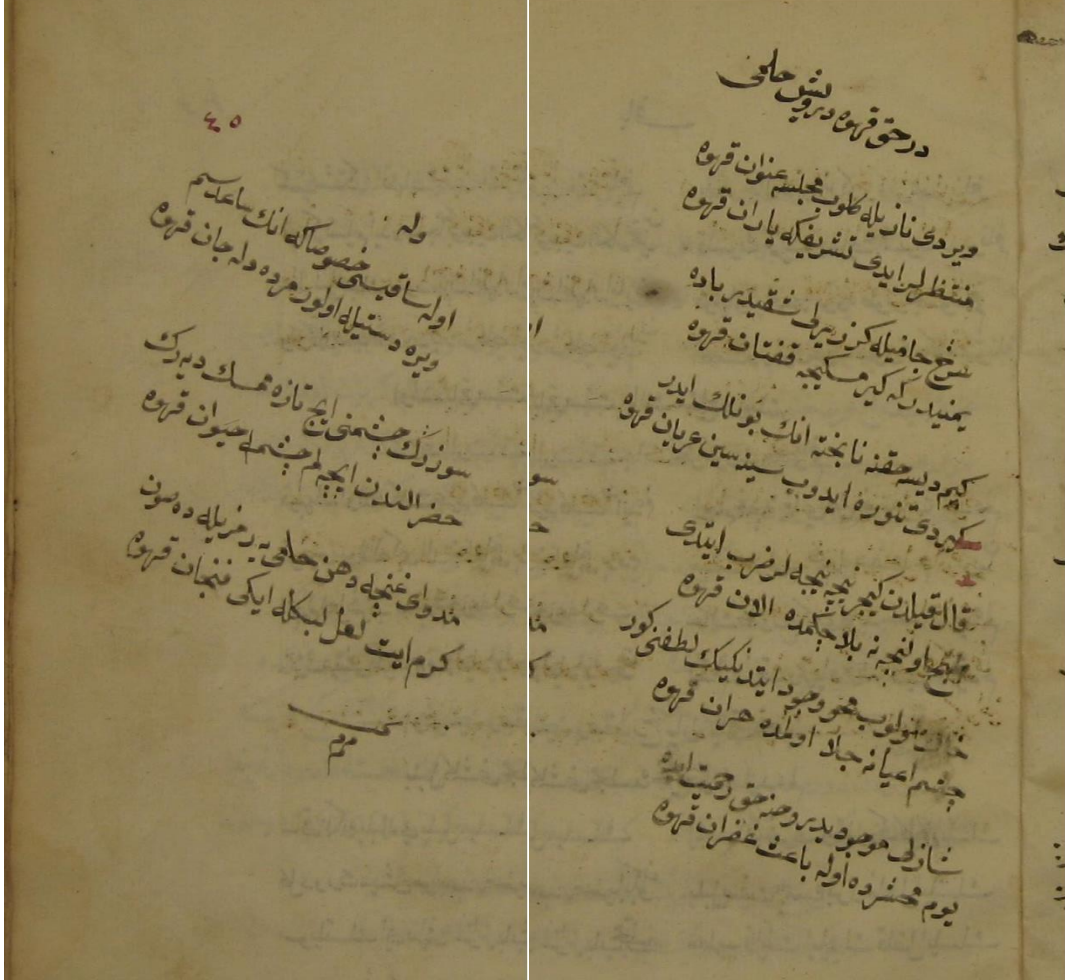 در حق قهوه درویش حلمی
ویردی نازیله کلوب مجلسه عنوان قهوه
منتظرلر ایدی تشریفکه یاران قهوه
سرخ جامیله کزر یرلی شقیدر باده
یمنیدر که کیر مسکیجه قفتان قهوه
کیم دیسه حقنه نابخته انك بونلك ایدر
کیردی تنوره ایدوب سینه سین عریان قهوه
قال قیلدن کیجر نیجه لر ضرب ایتدی
اولنجه نه بلا چکمده الان قهوه
خاك اولوب محو وجود ایتدیكیك لطفنی کور
چشم اعیانه جلا اولمده هر ان قهوه
شاذلی موجودیدر روحنه حق رحمت ایده
یوم محشرده اوله باعث غفران قهوه
٤٥
وله
اوله ساقیسی خصوصاکه انك ساعد سیم
ویره دستیله اولور مرده دله جان قهوه
سوزرك چشمنی ایچ تازه ممسك دیه رك
خضر الندن ایچه لم چشمهٔ حیوان قهوه
غنچه دهن حلمی یه رمزیله ده صون
کرم ایت لعل لبکله ایکی فنجان قهوه